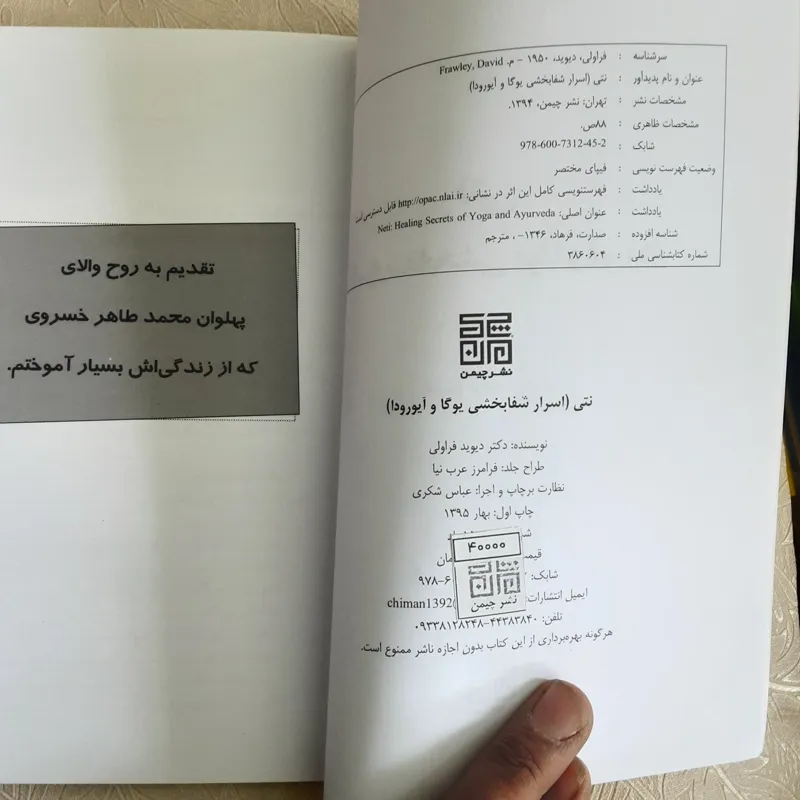 سرشناسه : فراولی، دیوید، ۱۹۵۰ - م. Frawley, David
عنوان و نام پدیدآور : نتی (اسرار شفابخشی یوگا و آیورودا)
مشخصات نشر : تهران: نشر چیمن، ۱۳۹۴.
مشخصات ظاهری : ۸۸ص.
شابک : 978-600-7312-45-2
وضعیت فهرست نویسی : فیپای مختصر
یادداشت : فهرستنویسی کامل این اثر در نشانی: http://opac.nlai.ir قابل دسترسی است
یادداشت : عنوان اصلی: Neti: Healing Secrets of Yoga and Ayurveda
شناسه افزوده : صدارت، فرهاد، ۱۳۴۶- ، مترجم
شماره کتابشناسی ملی : ۳۸۶۰۶۰۴
نشر چیمن
نتی (اسرار شفابخشی یوگا و آیورودا)
نویسنده: دکتر دیوید فراولی
طراح جلد: فرامرز عرب نیا
نظارت برچاپ و اجرا: عباس شکری
چاپ اول: بهار ۱۳۹۵
۴۰۰۰۰
شابک: ۹۷۸-۶
نشر چیمن
ایمیل انتشارات: chiman1392
تلفن: ۴۴۳۸۳۸۴۰-۰۹۳۳۸۱۲۸۲۴۸
هرگونه بهره‌برداری از این کتاب بدون اجازه ناشر ممنوع است.
تقدیم به روح والای
پهلوان محمد طاهر خسروی
که از زندگی‌اش بسیار آموختم.